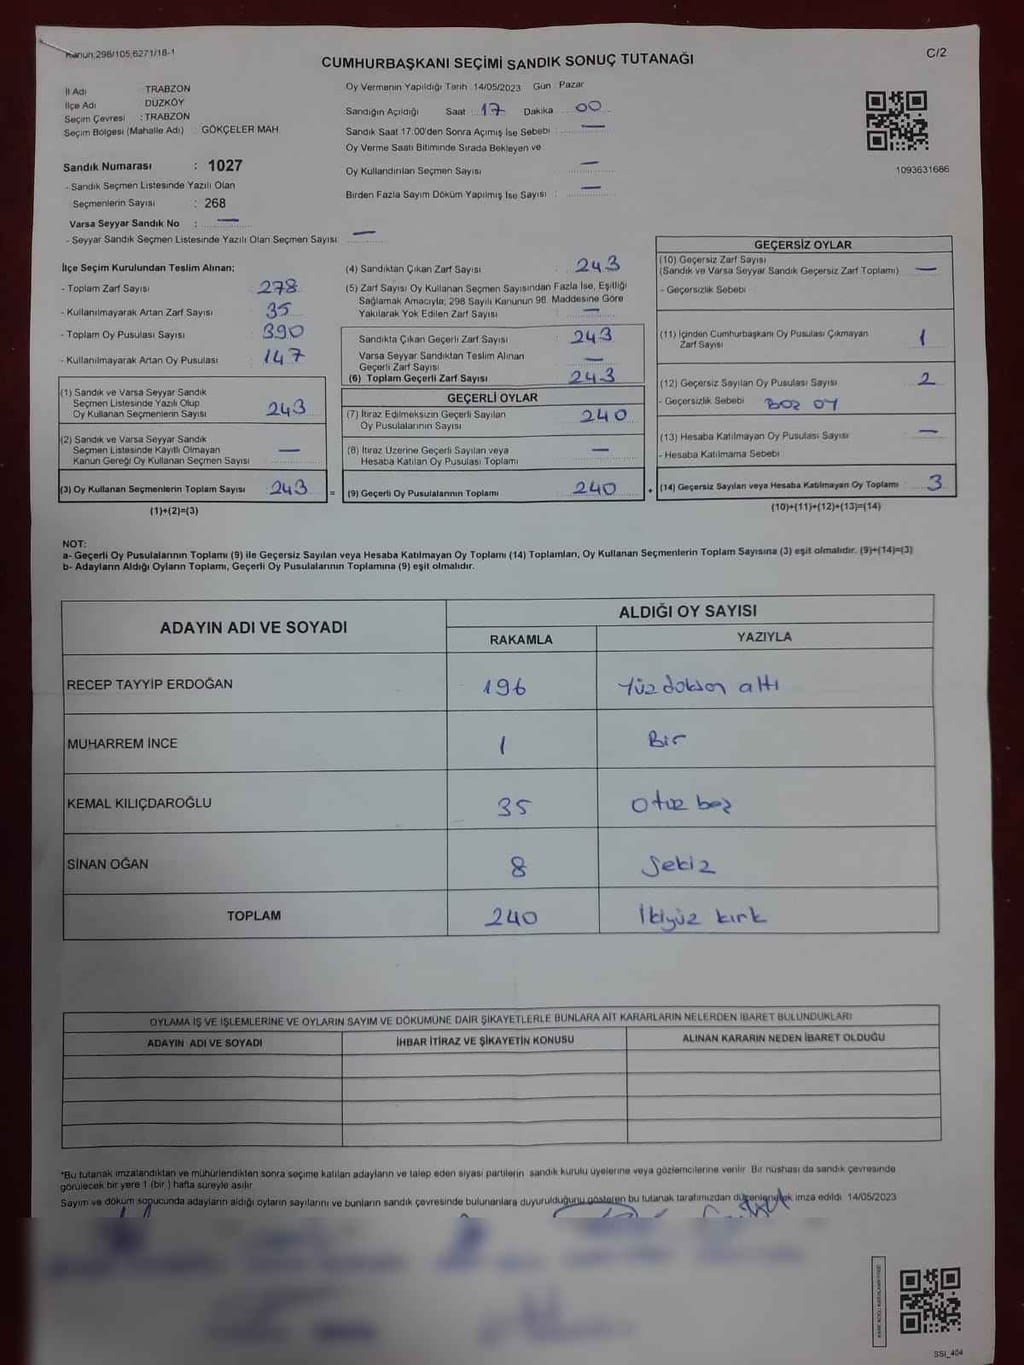 Kanun:298/105,6271/18-1
C/2
CUMHURBAŞKANI SEÇİMİ SANDIK SONUÇ TUTANAĞI
İl Adı TRABZON
İlçe Adı DÜZKÖY
Seçim Çevresi : TRABZON
Seçim Bölgesi (Mahalle Adı) GÖKÇELER MAH.
Oy Vermenin Yapıldığı Tarih 14/05/2023 Gün Pazar
Sandığın Açıldığı Saat 17 Dakika 00
Sandık Saat 17:00'den Sonra Açımış İse Sebebi : —
Oy Verme Saati Bitiminde Sırada Bekleyen ve
Oy Kullandırılan Seçmen Sayısı —
Birden Fazla Sayım Döküm Yapılmış İse Sayısı : —
1093631686
Sandık Numarası : 1027
- Sandık Seçmen Listesinde Yazılı Olan
Seçmenlerin Sayısı : 268
Varsa Seyyar Sandık No : —
- Seyyar Sandık Seçmen Listesinde Yazılı Olan Seçmen Sayısı —
İlçe Seçim Kurulundan Teslim Alınan:
- Toplam Zarf Sayısı 278
- Kullanılmayarak Artan Zarf Sayısı 35
- Toplam Oy Pusulası Sayısı 390
- Kullanılmayarak Artan Oy Pusulası 147
(1) Sandık ve Varsa Seyyar Sandık
Seçmen Listesinde Yazılı Olup
Oy Kullanan Seçmenlerin Sayısı 243
(2) Sandık ve Varsa Seyyar Sandık
Seçmen Listesinde Kayıtlı Olmayan
Kanun Gereği Oy Kullanan Seçmen Sayısı —
(3) Oy Kullanan Seçmenlerin Toplam Sayısı 243 =
(1)+(2)=(3)
(4) Sandıktan Çıkan Zarf Sayısı : 243
(5) Zarf Sayısı Oy Kullanan Seçmen Sayısından Fazla İse, Eşitliği
Sağlamak Amacıyla; 298 Sayılı Kanunun 98. Maddesine Göre
Yakılarak Yok Edilen Zarf Sayısı —
Sandıkta Çıkan Geçerli Zarf Sayısı 243
Varsa Seyyar Sandıktan Teslim Alınan
Geçerli Zarf Sayısı —
(6) Toplam Geçerli Zarf Sayısı 243
GEÇERLİ OYLAR
(7) İtiraz Edilmeksizin Geçerli Sayılan
Oy Pusulalarının Sayısı 240
(8) İtiraz Üzerine Geçerli Sayılan veya
Hesaba Katılan Oy Pusulası Toplamı —
(9) Geçerli Oy Pusulalarının Toplamı 240 +
GEÇERSİZ OYLAR
(10) Geçersiz Zarf Sayısı
(Sandık ve Varsa Seyyar Sandık Geçersiz Zarf Toplamı) —
- Geçersizlik Sebebi
(11) İçinden Cumhurbaşkanı Oy Pusulası Çıkmayan
Zarf Sayısı 1
(12) Geçersiz Sayılan Oy Pusulası Sayısı 2
- Geçersizlik Sebebi BOZ OY
(13) Hesaba Katılmayan Oy Pusulası Sayısı —
- Hesaba Katılmama Sebebi
(14) Geçersiz Sayılan veya Hesaba Katılmayan Oy Toplamı 3
(10)+(11)+(12)+(13)=(14)
NOT:
a- Geçerli Oy Pusulalarının Toplamı (9) ile Geçersiz Sayılan veya Hesaba Katılmayan Oy Toplamı (14) Toplamları, Oy Kullanan Seçmenlerin Toplam Sayısına (3) eşit olmalıdır. (9)+(14)=(3)
b- Adayların Aldığı Oyların Toplamı, Geçerli Oy Pusulalarının Toplamına (9) eşit olmalıdır.
ADAYIN ADI VE SOYADI
ALDIĞI OY SAYISI
RAKAMLA YAZIYLA
RECEP TAYYİP ERDOĞAN 196 Yüz doksan altı
MUHARREM İNCE 1 Bir
KEMAL KILIÇDAROĞLU 35 Otuz beş
SİNAN OĞAN 8 Sekiz
TOPLAM 240 İkiyüz kırk
OYLAMA İŞ VE İŞLEMLERİNE VE OYLARIN SAYIM VE DÖKÜMÜNE DAİR ŞİKAYETLERLE BUNLARA AİT KARARLARIN NELERDEN İBARET BULUNDUKLARI
ADAYIN ADI VE SOYADI İHBAR İTİRAZ VE ŞİKAYETİN KONUSU ALINAN KARARIN NEDEN İBARET OLDUĞU
*Bu tutanak imzalandıktan ve mühürlendikten sonra seçime katılan adayların ve talep eden siyasi partilerin sandık kurulu üyelerine veya gözlemcilerine verilir. Bir nüshası da sandık çevresinde
görülecek bir yere 1 (bir) hafta süreyle asılır
Sayım ve döküm sonucunda adayların aldığı oyların sayılarını ve bunların sandık çevresinde bulunanlara duyurulduğunu gösteren bu tutanak tarafımızdan düzenlenerek imza edildi. 14/05/2023
SSI_404